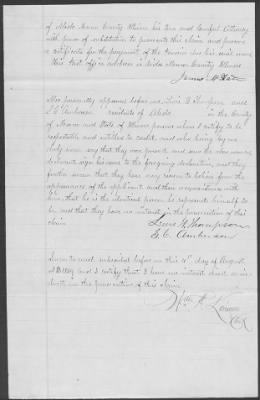 of Aledo Mercer County Illinois his true and lawful Attorney
with power of substitution to prosecute this claim and procure
a certificate for the payment of the
this Post office address is Aledo Mercer County Illinois
James M
Also personally appeared before me Lewis H Thompson and
E. C. Amberson residents of Aledo in the County
of Mercer and State of Illinois persons whom I certify to be
respectable and entitled to credit, and who being by me
duly sworn say that they were present and saw the above named
declarant sign his name to the foregoing declaration, and they
further swear that they have every reason to believe from the
appearance of the applicant and their acquaintance with
him, that he is the identical person he represents himself to
be, and that they have no interest in the prosecution of this
claim
Lewis H Thompson
E. C. Amberson
Sworn to and subscribed before me this day of August
and I certify that I have no interest direct or in-
direct in the prosecution of this claim
Clk